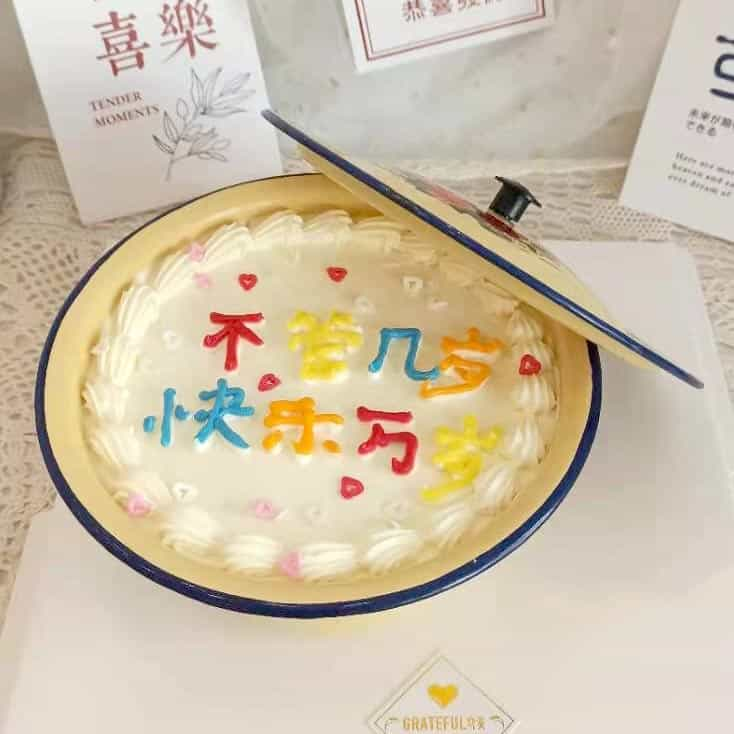 喜樂
TENDER
MOMENTS
恭喜發
未来が
できる
Here are
heaven and
ever dream of
不管几岁
快乐万岁
GRATEFUL